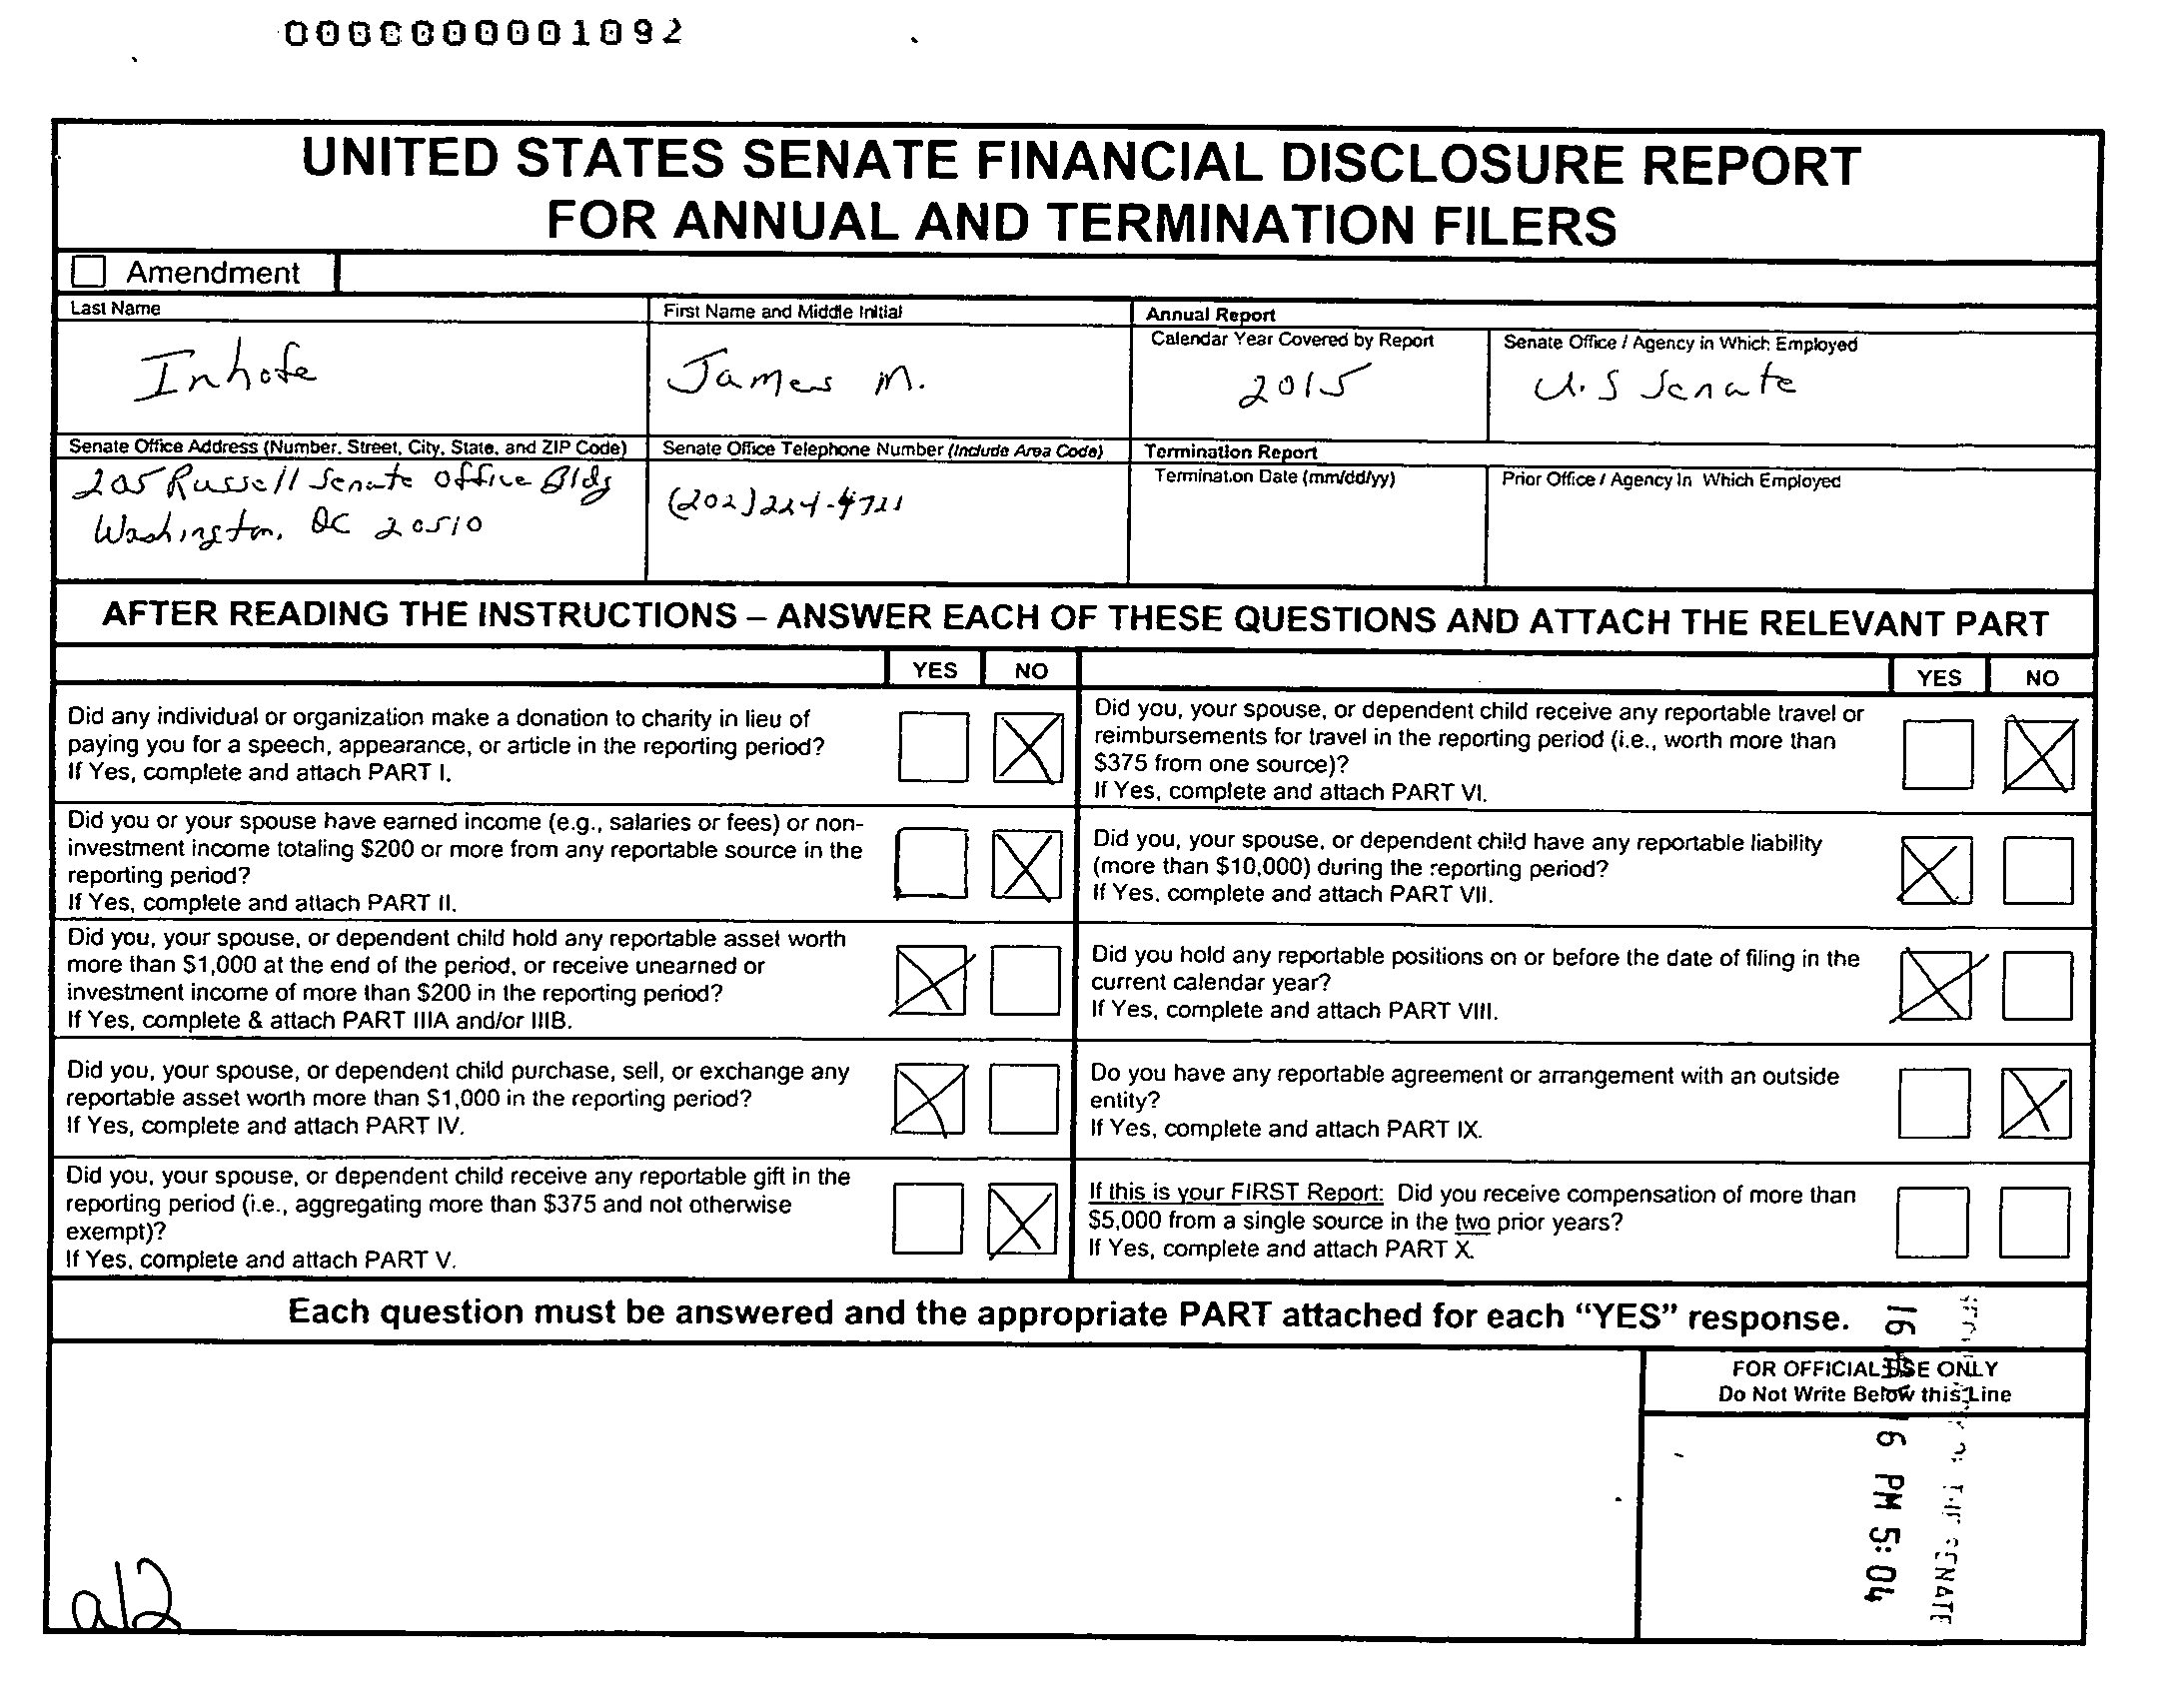 000C000001092
UNITED STATES SENATE FINANCIAL DISCLOSURE REPORT
FOR ANNUAL AND TERMINATION FILERS
Amendment
Last Name
Inhofe
First Name and Middle Initial
James M.
Annual Report
Calendar Year Covered by Report
2015
Senate Office / Agency in Which Employed
U.S Senate
Senate Office Address (Number, Street, City, State, and ZIP Code)
205 Russell Senate Office Bldg
Washington, DC 20510
Senate Office Telephone Number (Include Area Code)
(202) 224-4721
Termination Report
Termination Date (mm/dd/yy)
Prior Office / Agency In Which Employed
AFTER READING THE INSTRUCTIONS – ANSWER EACH OF THESE QUESTIONS AND ATTACH THE RELEVANT PART
YES NO
Did any individual or organization make a donation to charity in lieu of
paying you for a speech, appearance, or article in the reporting period?
If Yes, complete and attach PART I.
Did you or your spouse have earned income (e.g., salaries or fees) or non-
investment income totaling $200 or more from any reportable source in the
reporting period?
If Yes, complete and attach PART II.
Did you, your spouse, or dependent child hold any reportable asset worth
more than $1,000 at the end of the period, or receive unearned or
investment income of more than $200 in the reporting period?
If Yes, complete & attach PART IIIA and/or IIIB.
Did you, your spouse, or dependent child purchase, sell, or exchange any
reportable asset worth more than $1,000 in the reporting period?
If Yes, complete and attach PART IV.
Did you, your spouse, or dependent child receive any reportable gift in the
reporting period (i.e., aggregating more than $375 and not otherwise
exempt)?
If Yes, complete and attach PART V.
YES NO
Did you, your spouse, or dependent child receive any reportable travel or
reimbursements for travel in the reporting period (i.e., worth more than
$375 from one source)?
If Yes, complete and attach PART VI.
Did you, your spouse, or dependent child have any reportable liability
(more than $10,000) during the reporting period?
If Yes, complete and attach PART VII.
Did you hold any reportable positions on or before the date of filing in the
current calendar year?
If Yes, complete and attach PART VIII.
Do you have any reportable agreement or arrangement with an outside
entity?
If Yes, complete and attach PART IX.
If this is your FIRST Report: Did you receive compensation of more than
$5,000 from a single source in the two prior years?
If Yes, complete and attach PART X.
Each question must be answered and the appropriate PART attached for each “YES” response.
FOR OFFICIAL USE ONLY
Do Not Write Below this Line
16 6 PM 5:04
SENATE